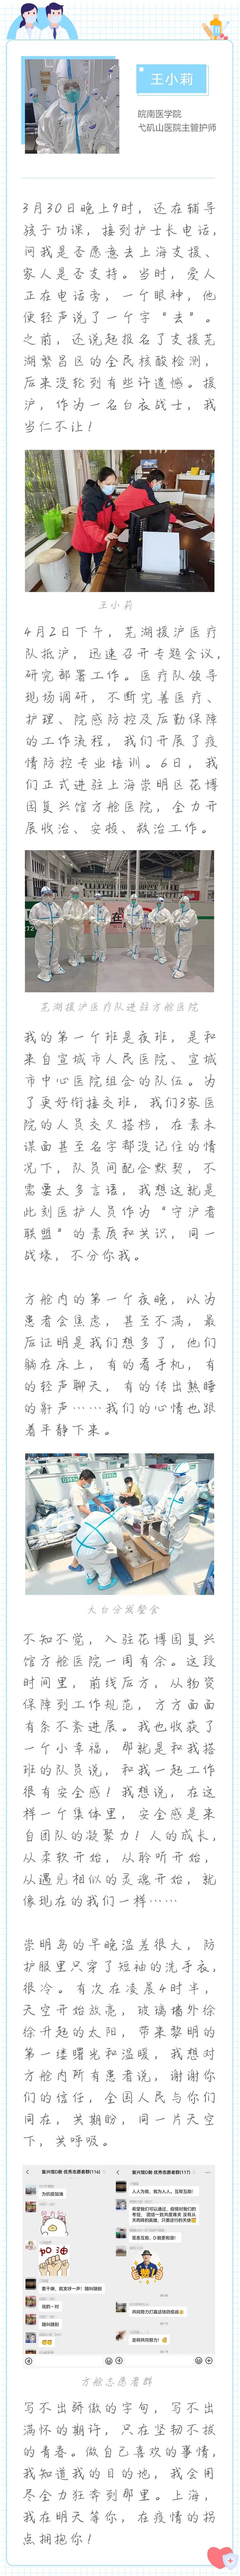 王小莉
皖南医学院
弋矶山医院主管护师
3月30日晚上9时，还在辅导
孩子功课，接到护士长电话，
问我是否愿意去上海支援、
家人是否支持。当时，爱人
正在电话旁，一个眼神，他
便轻声说了一个字“去”。
之前，还说起报名了支援芜
湖繁昌区的全民核酸检测，
后来没轮到有些许遗憾。援
沪，作为一名白衣战士，我
当仁不让！
王小莉
4月2日下午，芜湖援沪医疗
队抵沪，迅速召开专题会议，
研究部署工作。医疗队领导
现场调研，不断完善医疗、
护理、院感防控及后勤保障
的工作流程，我们开展了疫
情防控专业培训。6日，我
们正式进驻上海崇明区花博
园复兴馆方舱医院，全力开
展收治、安顿、救治工作。
在
芜湖援沪医疗队进驻方舱医院
我的第一个班是夜班，是和
来自宣城市人民医院、宣城
市中心医院组合的队伍。为
了更好衔接交班，我们3家医
院的人员交叉搭档，在素未
谋面甚至名字都没记住的情
况下，队员间配合默契，不
需要太多言语，我想这就是
此刻医护人员作为“守沪者
联盟”的素质和共识，同一
战壕，不分你我。
方舱内的第一个夜晚，以为
患者会焦虑，甚至不满，最
后证明是我们想多了，他们
躺在床上，有的看手机，有
的轻声聊天，有的传出熟睡
的鼾声……我们的心情也跟
着平静下来。
大白分发餐食
不知不觉，入驻花博园复兴
馆方舱医院一周有余。这段
时间里，前线后方，从物资
保障到工作规范，方方面面
有条不紊进展。我也收获了
一个小幸福，那就是和我搭
班的队员说，和我一起工作
很有安全感！我想说，在这
样一个集体里，安全感是来
自团队的凝聚力！人的成长，
从柔软开始，从聆听开始，
从遇见相似的灵魂开始，就
像现在的我们一样……
崇明岛的早晚温差很大，防
护服里只穿了短袖的洗手衣，
很冷。有次在凌晨4时半，
天空开始放亮，玻璃墙外徐
徐升起的太阳，带来黎明的
第一缕曙光和温暖，我想对
方舱内所有患者说，谢谢你
们的信任，全国人民与你们
同在，共期盼，同一片天空
下，共呼吸。
复兴馆D舱 优秀志愿者群(116)
为抗疫加油
加油
要干嘛，就支吵一声！随叫随到
随叫随到
复兴馆D舱 优秀志愿者群(117)
人人为我，我为人人，互帮互助！
医患互助，D舱最和谐！
共同努力打赢这场防疫战
是的共同努力！
方舱志愿者群
写不出骄傲的字句，写不出
满怀的期许，只在坚韧不拔
的青春。做自己喜欢的事情，
我知道我的目的地，我会用
尽全力狂奔到那里。上海，
我在明天等你，在疫情的拐
点拥抱你！